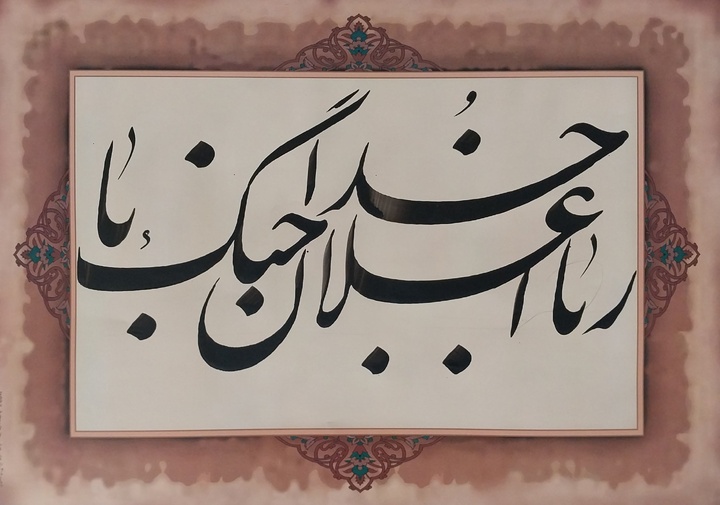 ربا اعلان جنگ با خدا